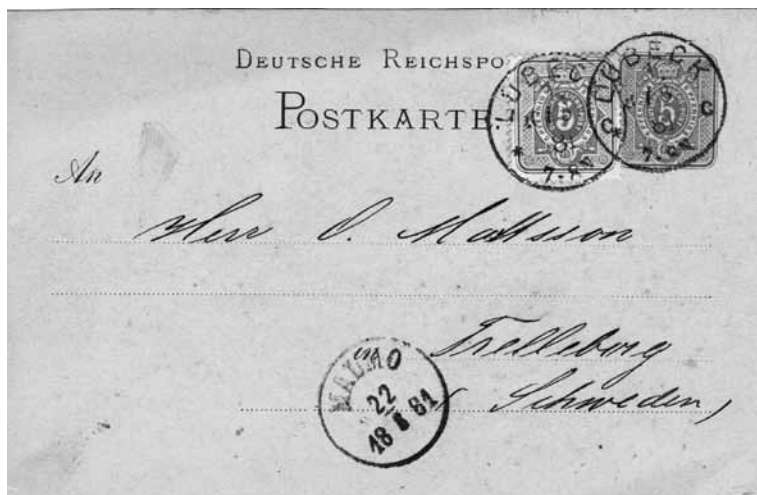 DEUTSCHE REICHSPO
POSTKARTE.
LÜBEC
81
7-8V
LÜBECK
C C
7-8V
5
5
An
Herr O. Mattsson
Trelleborg
(Schweden)
MALMO
22
18 8 81